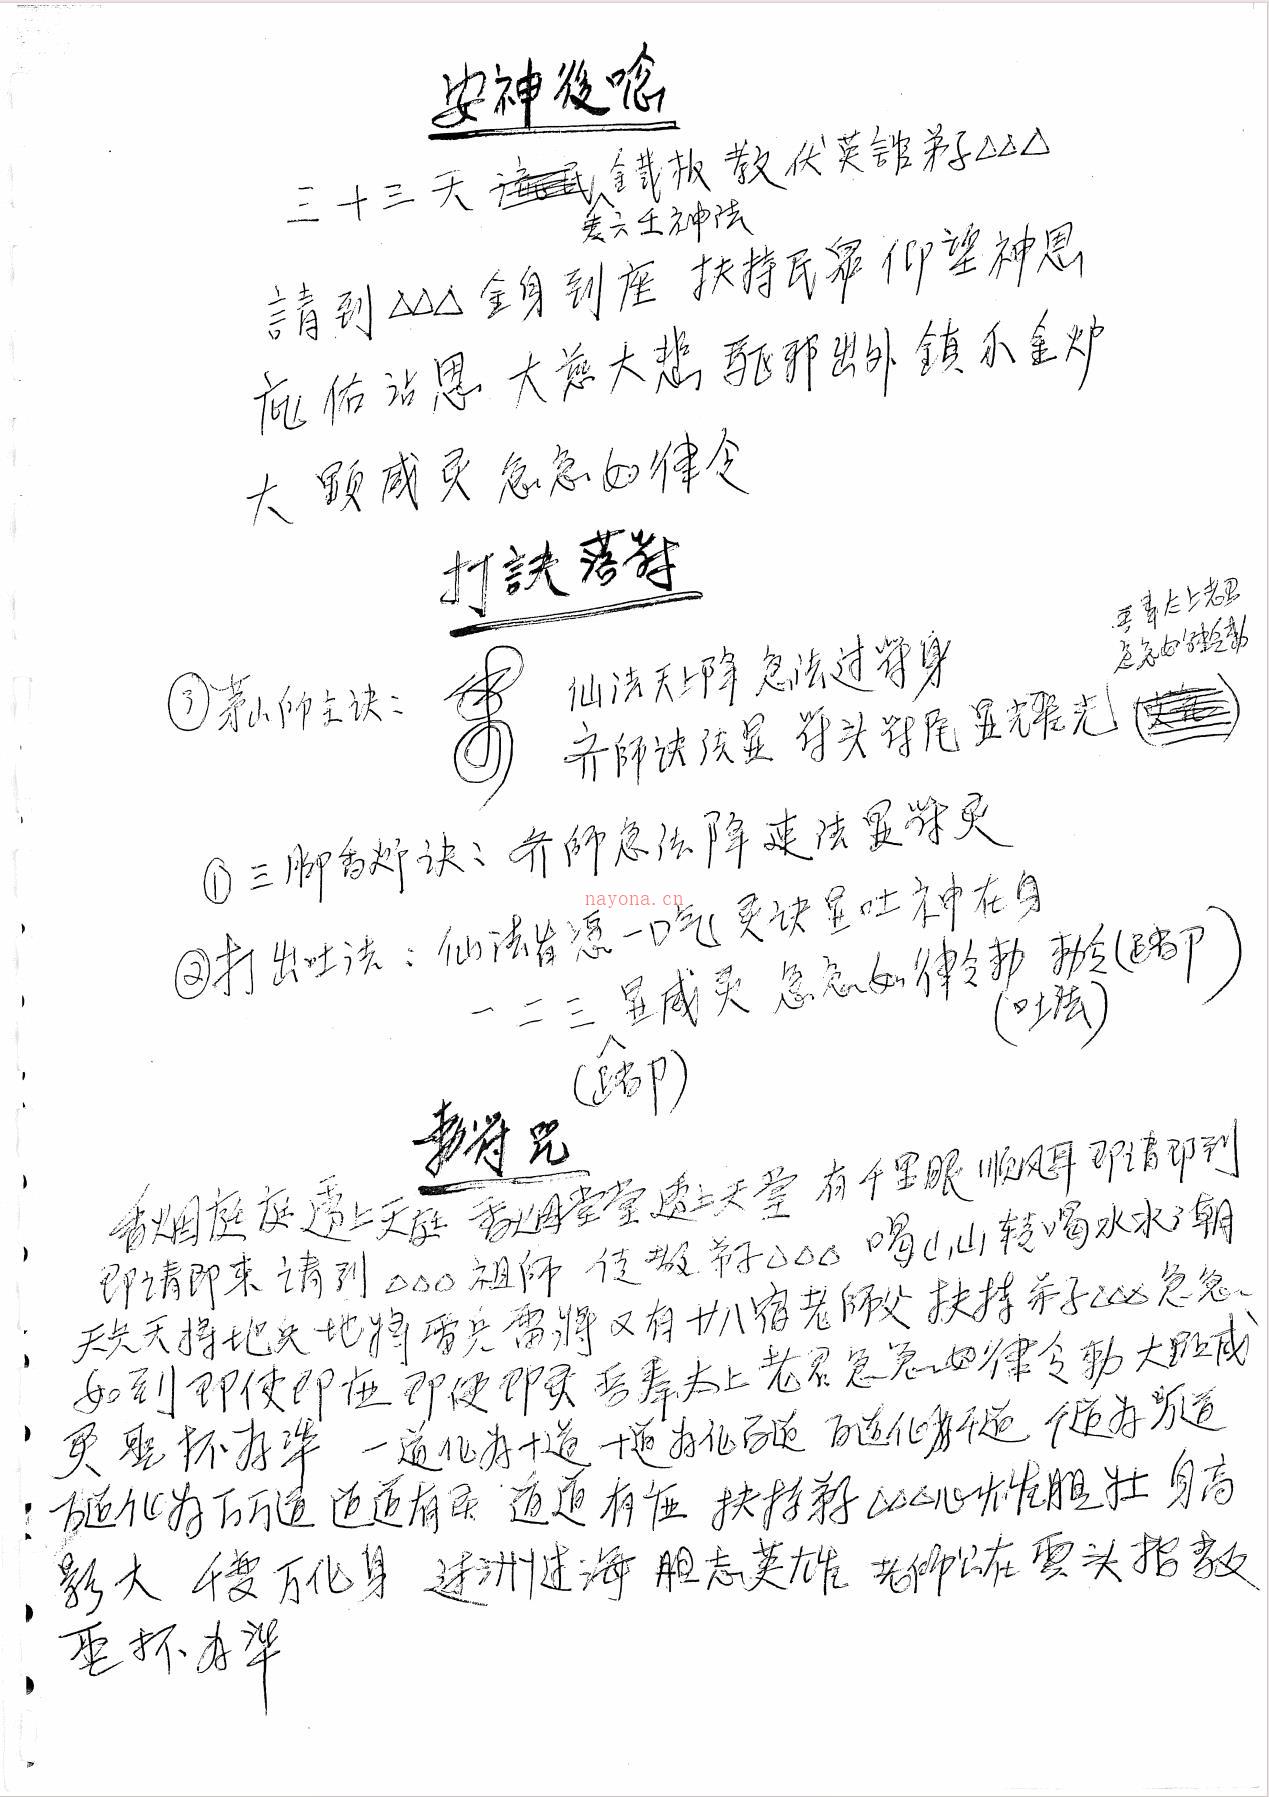 安神後唸
三十三天 鐵板教伏英館弟子△△△
六壬神法
請到△△△金身到座 扶持民眾 仰望神恩
庇佑沾恩 大慈大悲 驅邪出外 鎮 金炉
大顕威灵 急急如律令
打訣落符
吾奉太上老君
急急如律令勅
③茅山師主诀： 仙法天上降 急法过符身
齐師诀法显 符头符尾显光
①三脚香炉诀：齐師急法降来法显符灵
nayona.cn
②打出吐法：仙法皆憑一口气 灵诀显吐神在身
一二三显威灵 急急如律令勅 勅令(踏卩)
(吐法)
(踏卩)
勅符咒
香烟庭庭透上天庭 香烟堂堂透上天堂 有千里眼 順风耳 即请即到
即请即来 请到△△△祖師 传教弟子△△△ 喝山山转喝水水
天兵天将地兵地將雷兵雷將又有廿八宿老師父 扶持弟子△△△急急
如到 即使即应 即使即灵 吾奉太上老君急急如律令勅 大显威
灵 聖抔为準 一道化为十道 十道为化百道 百道化为千道 千道为万道
万道化为万万道 道道有灵 道道有应 扶持弟子△△△心雄胆壮 身高
影大 千变万化身 过洲过海 胆志英雄 老師公在 云头指教
聖抔为準